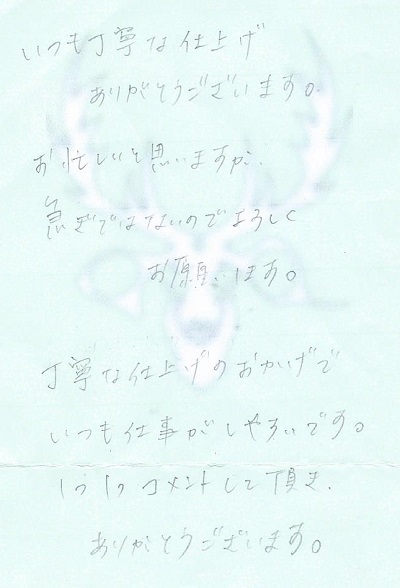 いつも丁寧な仕上げ
ありがとうございます。
お忙しいと思いますが、
急ぎではないのでよろしく
お願いします。
丁寧な仕上げのおかげで
いつも仕事がしやすいです。
1つ1つコメントして頂き、
ありがとうございます。